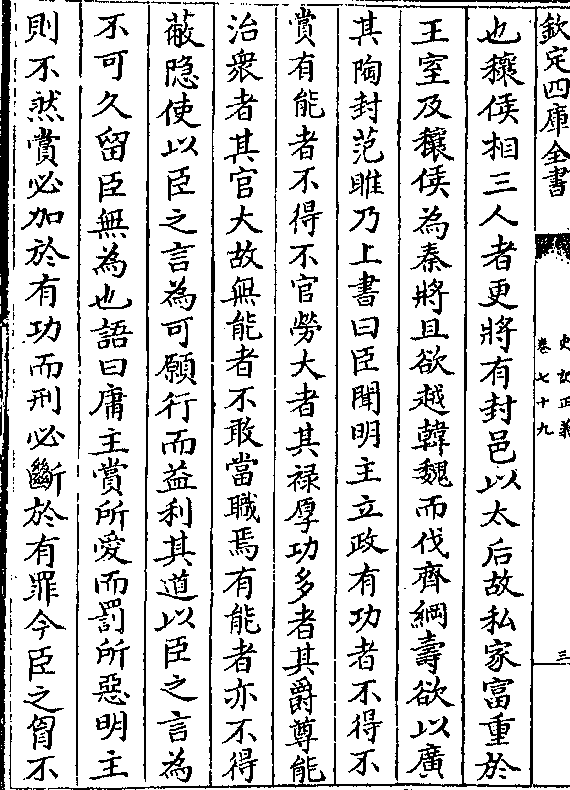 欽定四庫全書
史記正義
卷七十九
三
也穰侯相三人者更將有封邑以太后故私家富重於
王室及穰侯為秦將且欲越韓魏而伐齊綱壽欲以廣
其陶封范雎乃上書曰臣聞明主立政有功者不得不
賞有能者不得不官勞大者其禄厚功多者其爵尊能
治衆者其官大故無能者不敢當職焉有能者亦不得
蔽隐使以臣之言為可願行而益利其道以臣之言為
不可久留臣無為也語曰庸主賞所愛而罰所惡明主
則不然賞必加於有功而刑必斷於有罪今臣之胷不